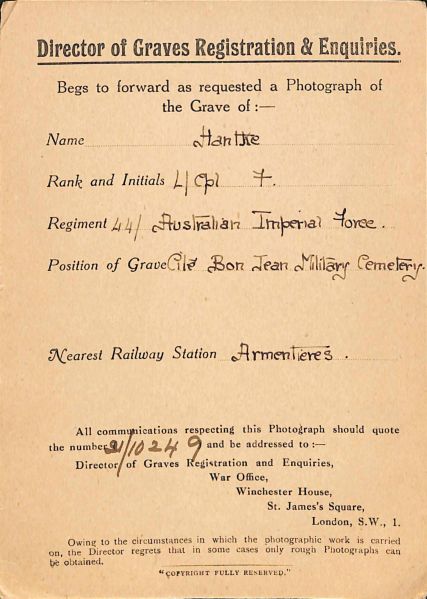 Director of Graves Registration & Enquiries.
Begs to forward as requested a Photograph of
the Grave of :—
Name Hantke
Rank and Initials L/Cpl F.
Regiment 44/ Australian Imperial Force.
Position of Grave Cité Bon Jean Military Cemetery.
Nearest Railway Station Armentieres.
All communications respecting this Photograph should quote
the number 21/10249 and be addressed to :—
Director of Graves Registration and Enquiries,
War Office,
Winchester House,
St. James's Square,
London, S.W., 1.
Owing to the circumstances in which the photographic work is carried
on, the Director regrets that in some cases only rough Photographs can
be obtained.
"COPYRIGHT FULLY RESERVED."